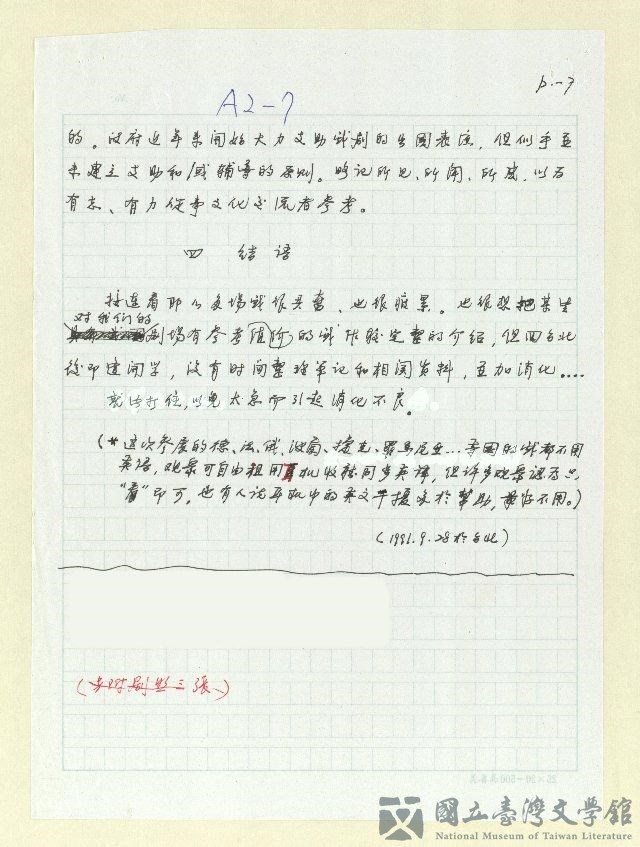 p.-7
A2-7
的。政府近年来開始大力支助戏剧的出國表演，但似乎並
未建立支助和/或輔導的原則。略记所见、所闻、所感，以为
有志、有力從事文化交流者参考。
四 结语
接連看那么多場戏很兴奮、也很脏累。也很想把某些
对我们的
剧場有参考值价的戏作較完整的介绍，但回台北
後即逢開学，没有时间整理笔记和相関资料，並加消化....
就此打住，以免太急而引起消化不良。
(*这次参展的德、法、俄、波蘭、捷克、羅马尼亚...等國的戏都不用
英语，观眾可自由租用耳机收聴同步英譯，但许多观眾認为只
"看"即可，也有人说耳机中的英文干擾多於幫助，最好不用。)
(1991.9.28於台北)
(另附剧照三張、)
25×20=500
國立臺灣文學館
National Museum of Taiwan Literature